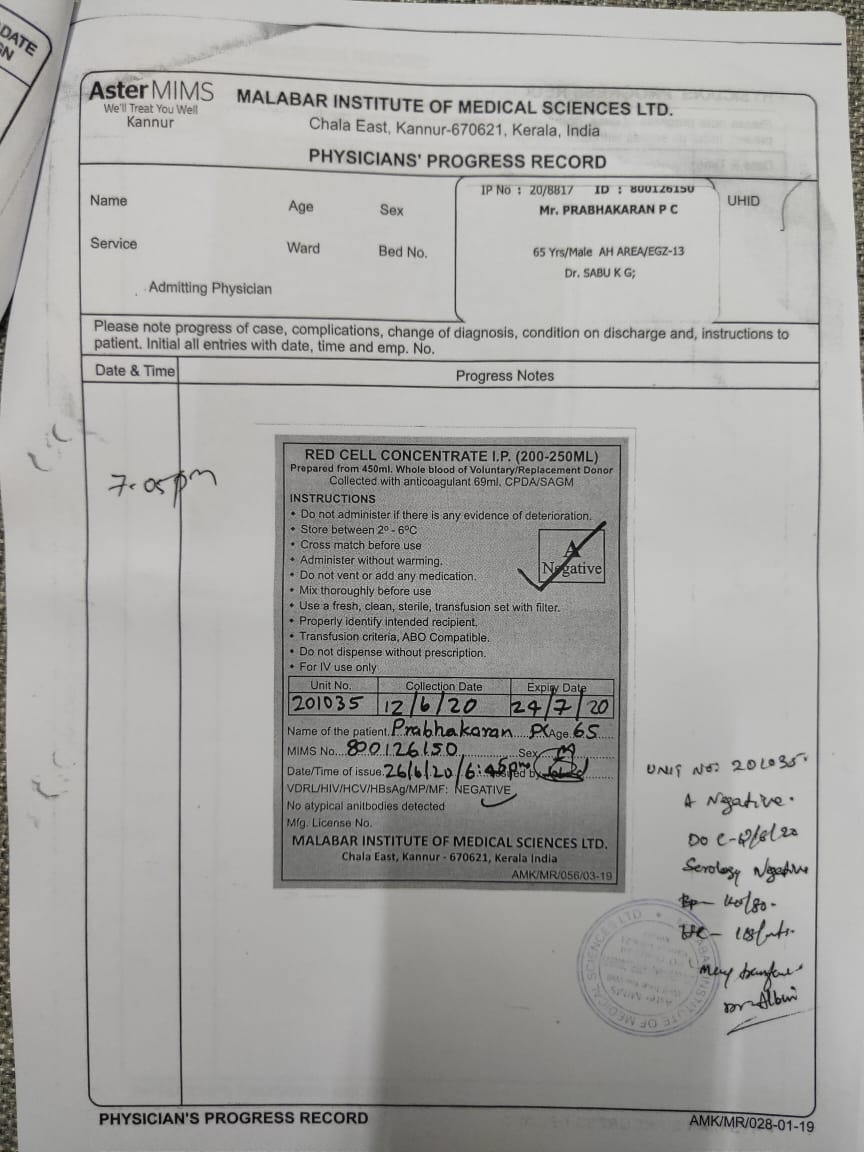 DATE
AsterMIMS
We'll Treat You Well
Kannur
MALABAR INSTITUTE OF MEDICAL SCIENCES LTD.
Chala East, Kannur-670621, Kerala, India
PHYSICIANS' PROGRESS RECORD
Name
Age
Sex
IP No : 20/8817 ID : 800126150
Mr. PRABHAKARAN P C
UHID
Service
Ward
Bed No.
65 Yrs/Male AH AREA/EGZ-13
Dr. SABU K G;
Admitting Physician
Please note progress of case, complications, change of diagnosis, condition on discharge and, instructions to
patient. Initial all entries with date, time and emp. No.
Date & Time
Progress Notes
7.05pm
RED CELL CONCENTRATE I.P. (200-250ML)
Prepared from 450ml. Whole blood of Voluntary/Replacement Donor
Collected with anticoagulant 69ml, CPDA/SAGM
INSTRUCTIONS
• Do not administer if there is any evidence of deterioration.
• Store between 2º - 6ºC
• Cross match before use
• Administer without warming.
• Do not vent or add any medication.
• Mix thoroughly before use
• Use a fresh, clean, sterile, transfusion set with filter.
• Properly identify intended recipient.
• Transfusion criteria, ABO Compatible.
• Do not dispense without prescription.
• For IV use only
A
Negative
Unit No. Collection Date Expiry Date
201035 12/6/20 24/7/20
Name of the patient. Prabhakaran PC Age. 65
MIMS No. 800126150 Sex M
Date/Time of issue. 26/6/20/6:45pm Issued by
VDRL/HIV/HCV/HBsAg/MP/MF: NEGATIVE
No atypical anitbodies detected
Mfg. License No.
MALABAR INSTITUTE OF MEDICAL SCIENCES LTD.
Chala East, Kannur - 670621, Kerala India
AMK/MR/056/03-19
UNIT No: 201035.
A Negative.
Do C-
Serology Negative
Bp-
May
Dr Albin
MALABAR INSTITUTE OF MEDICAL SCIENCES LTD
PHYSICIAN'S PROGRESS RECORD
AMK/MR/028-01-19